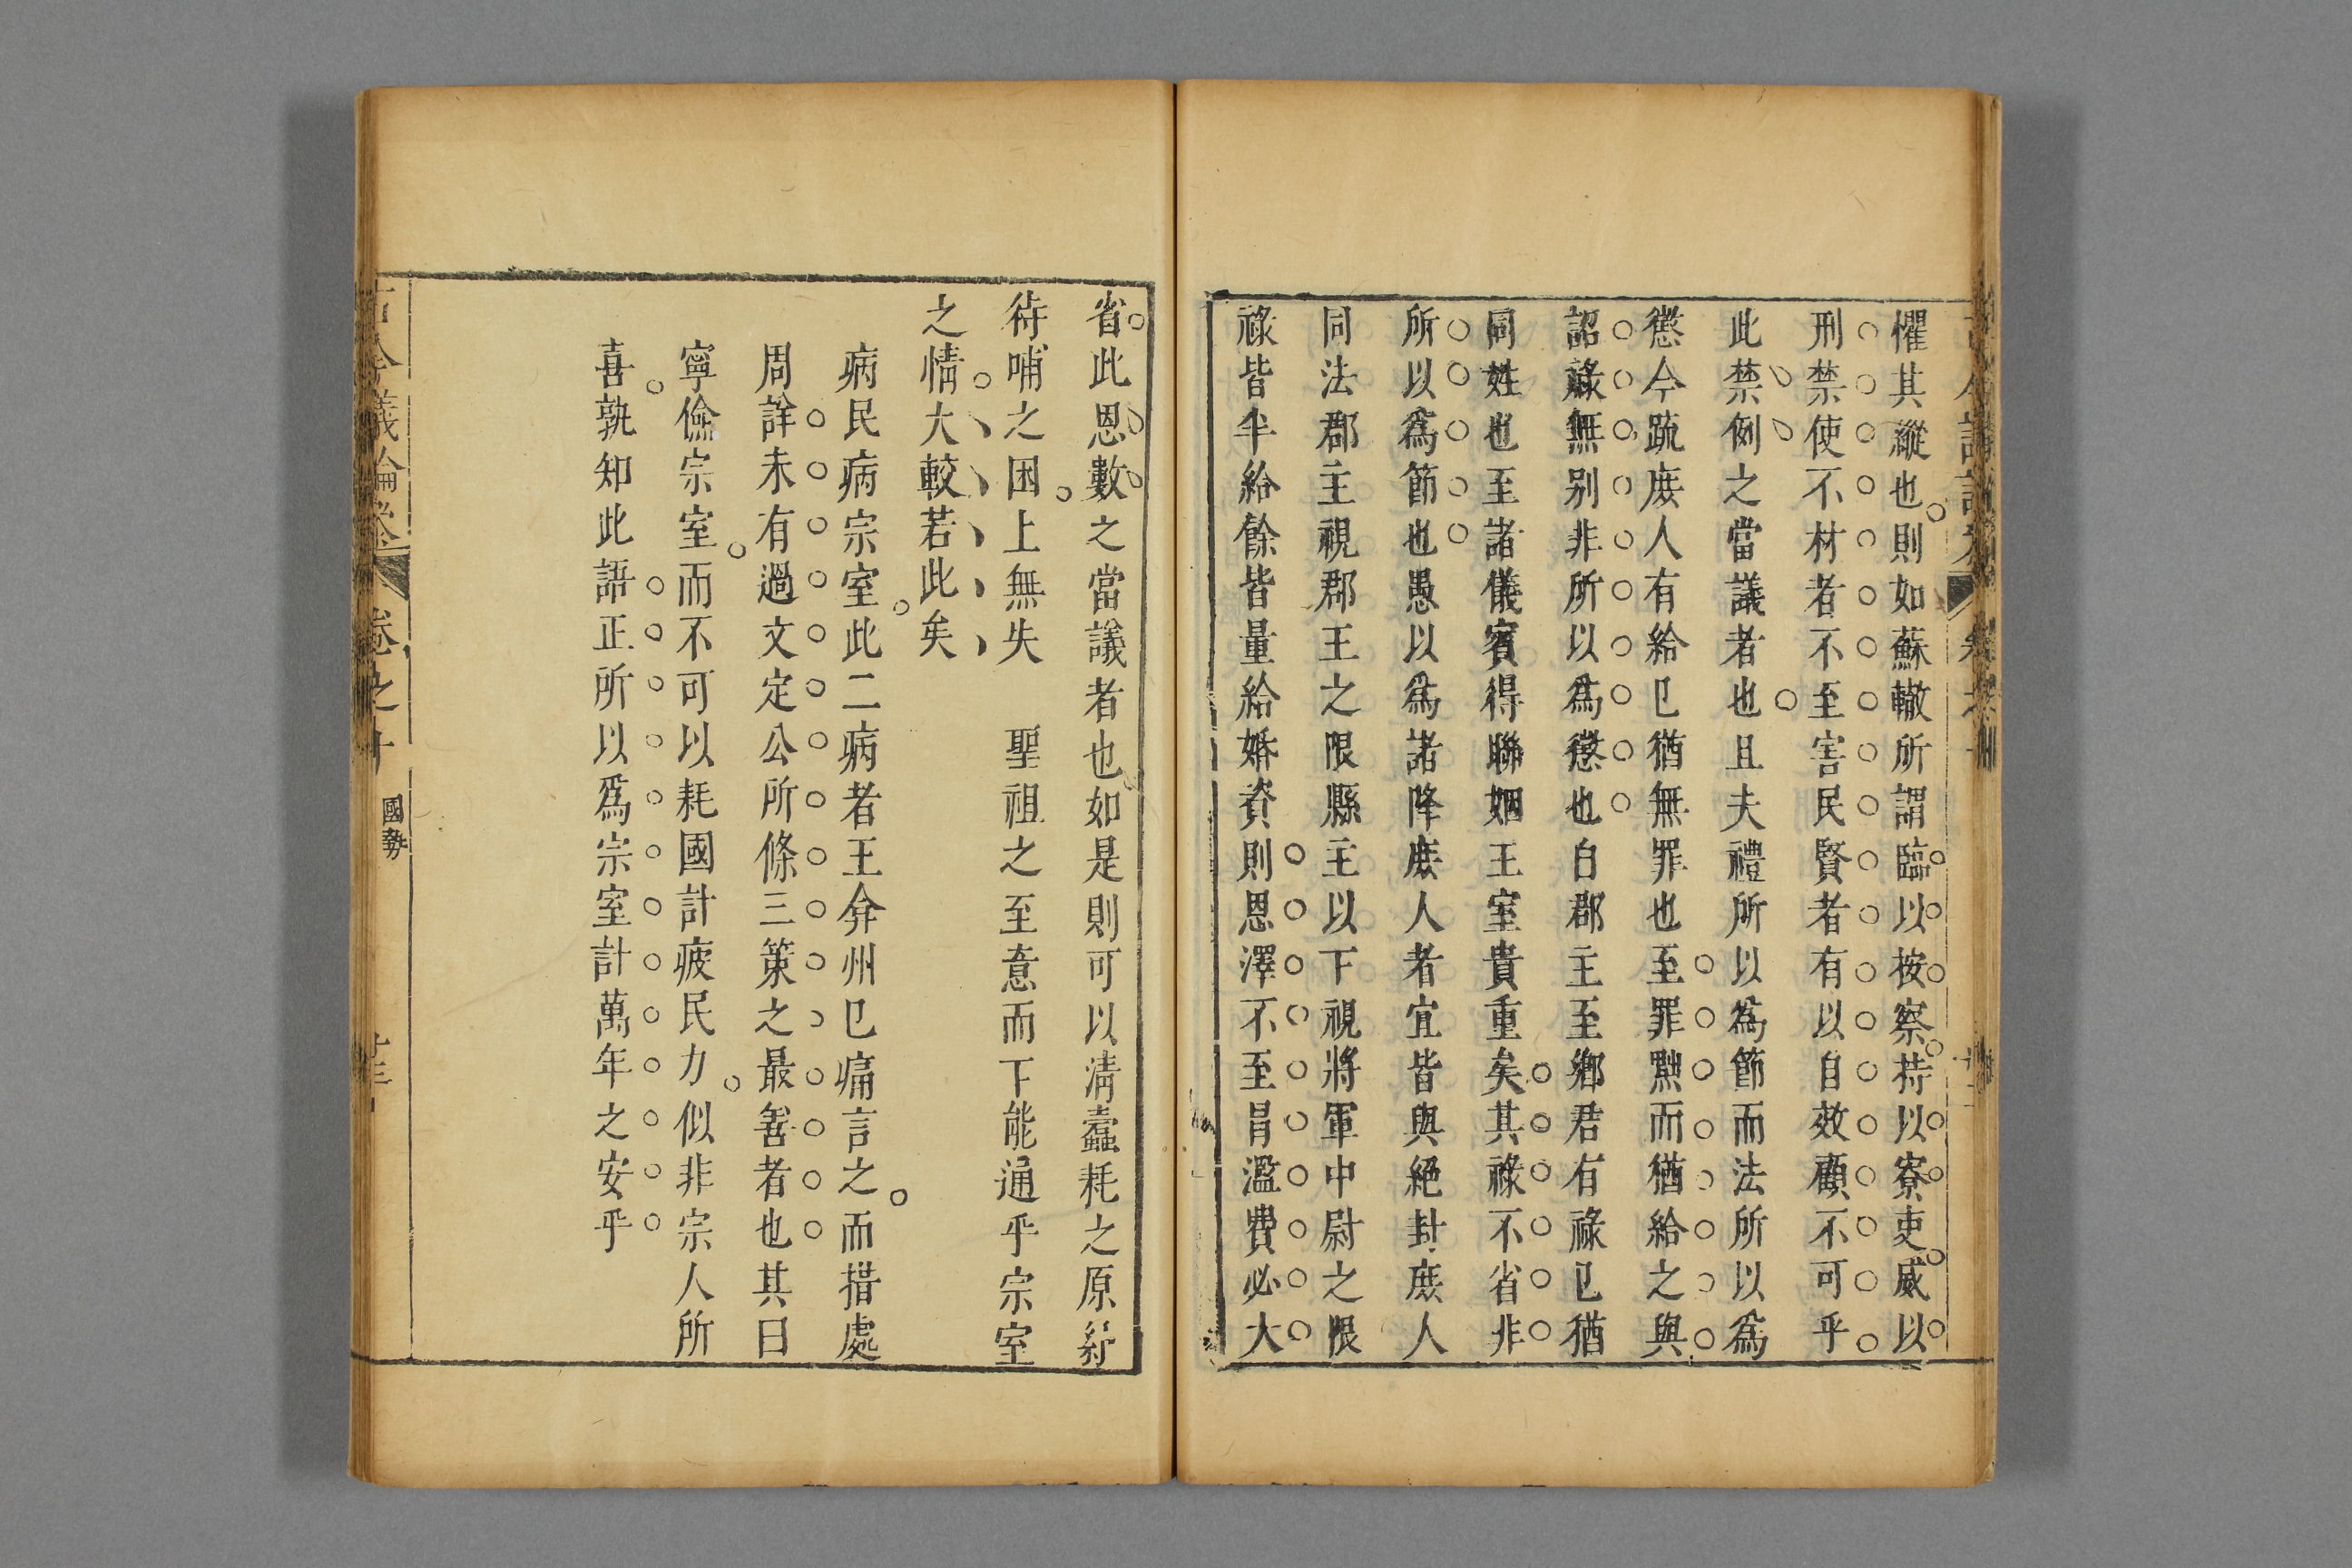 懼其縱也則如蘇轍所謂臨以按察持以寮吏威以
刑禁使不材者不至害民賢者有以自效顧不可乎
此禁例之當議者也且夫禮所以爲節而法所以爲
懲今疏庻人有給巳猶無罪也至罪黜而猶給之與
詔祿無别非所以爲懲也自郡主至鄉君有祿巳猶
同姓也至諸儀賓得聯姻王室貴重矣其祿不省非
所以爲節也愚以爲諸降庻人者宜皆與絕封庻人
同法郡主視郡王之限縣主以下視將軍中尉之限
祿皆半給餘皆量給婚資則恩澤不至冒濫費必大
省此恩數之當議者也如是則可以清蠧耗之原紓
待哺之困上無失　聖祖之至意而下能通乎宗室
之情大較若此矣
病民病宗室此二病者王弇州巳痛言之而措處
周詳未有過文定公所條三策之最善者也其曰
寧儉宗室而不可以耗國計疲民力似非宗人所
喜孰知此語正所以爲宗室計萬年之安乎
卷之十
國勢